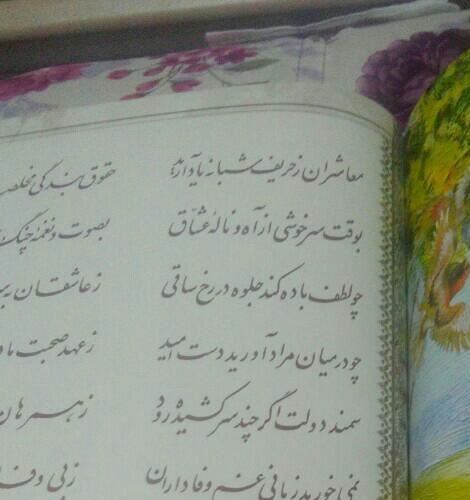 معاشران ز حریف شبانه یاد آرید حقوق بندگی مخلصـ
بوقت سرخوشی از آه و نالهٔ عشّاق بصوت و نغمهٔ چنگ
چو لطف باده کند جلوه در رخ ساقی ز عاشقان
چو در میان مراد آورید دست امید ز عهد صحبت ما
سمند دولت اگر چند سرکشیده رود ز همرهان
نمی خورید زمانی غم وفاداران ز بی وفا